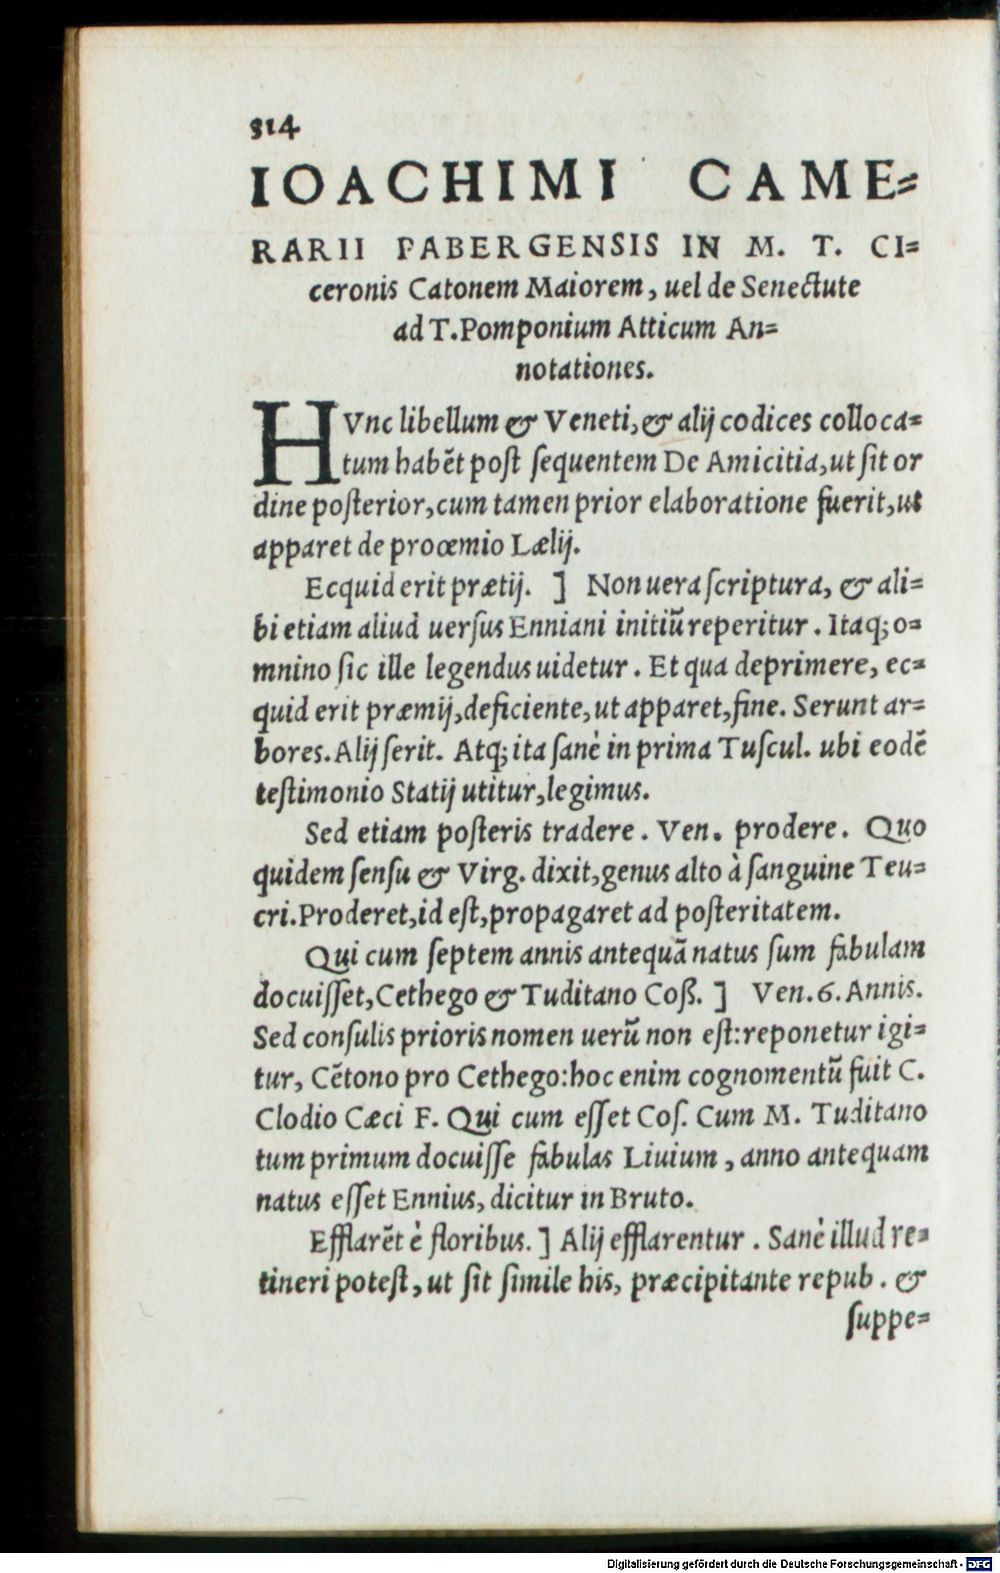 314
IOACHIMI CAME=
RARII PABERGENSIS IN M. T. CI=
ceronis Catonem Maiorem, uel de Senectute
ad T. Pomponium Atticum An=
notationes.
HVnc libellum & Veneti, & alij codices colloca=
tum habẽt post sequentem De Amicitia, ut sit or
dine posterior, cum tamen prior elaboratione fuerit, ut
apparet de proœmio Lælij.
Ecquid erit prætij. ] Non uera scriptura, & ali=
bi etiam aliud uersus Enniani initiũ reperitur. Itaq; o=
mnino sic ille legendus uidetur. Et qua deprimere, ec=
quid erit præmij, deficiente, ut apparet, fine. Serunt ar=
bores. Alij serit. Atq; ita sanè in prima Tuscul. ubi eodẽ
testimonio Statij utitur, legimus.
Sed etiam posteris tradere. Ven. prodere. Quo
quidem sensu & Virg. dixit, genus alto à sanguine Teu=
cri. Proderet, id est, propagaret ad posteritatem.
Qui cum septem annis antequã natus sum fabulam
docuisset, Cethego & Tuditano Coß. ] Ven. 6. Annis.
Sed consulis prioris nomen uerũ non est: reponetur igi=
tur, Cẽtono pro Cethego: hoc enim cognomentũ fuit C.
Clodio Cæci F. Qui cum esset Cos. Cum M. Tuditano
tum primum docuisse fabulas Liuium, anno antequam
natus esset Ennius, dicitur in Bruto.
Efflarẽt è floribus. ] Alij efflarentur. Sanè illud re=
tineri potest, ut sit simile his, præcipitante repub. &
suppe=
Digitalisierung gefördert durch die Deutsche Forschungsgemeinschaft - DFG